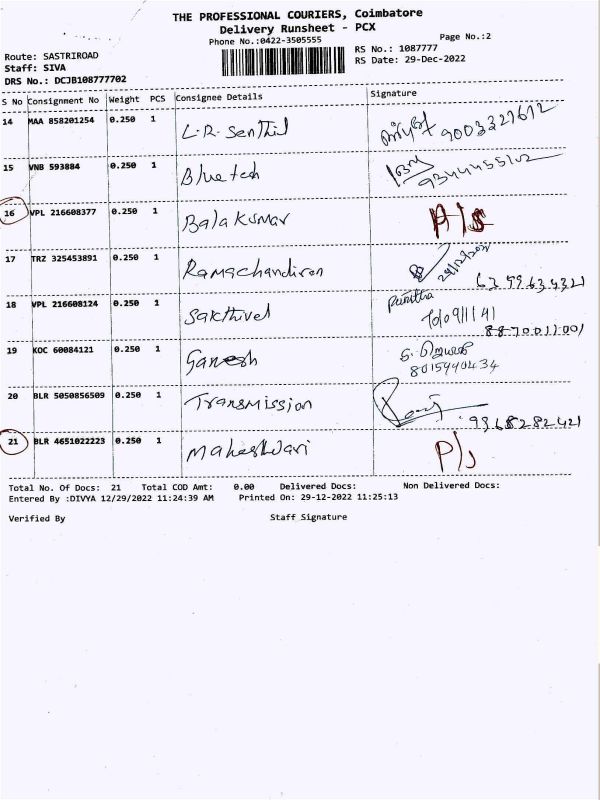 THE PROFESSIONAL COURIERS, Coimbatore
Delivery Runsheet - PCX
Phone No.:0422-3505555
Page No.:2
Route: SASTRIROAD
Staff: SIVA
DRS No.: DCJB108777702
RS No.: 1087777
RS Date: 29-Dec-2022
S No Consignment No Weight PCS Consignee Details Signature
14 MAA 858201254 0.250 1 L.R. Senthil 9003321612
15 VNB 593884 0.250 1 Bluetech 9344455102
16 VPL 216608377 0.250 1 Balakumar A/S
17 TRZ 325453891 0.250 1 Ramachandiran 29/12/202
63799634321
18 VPL 216608124 0.250 1 Sakthivel Punitha
8870011001
19 KOC 60084121 0.250 1 Ganesh 8015990434
20 BLR 5050856509 0.250 1 Transmission
9368282421
21 BLR 4651022223 0.250 1 Maheswari P/s
Total No. Of Docs: 21 Total COD Amt: 0.00 Delivered Docs: Non Delivered Docs:
Entered By :DIVYA 12/29/2022 11:24:39 AM Printed On: 29-12-2022 11:25:13
Verified By Staff Signature